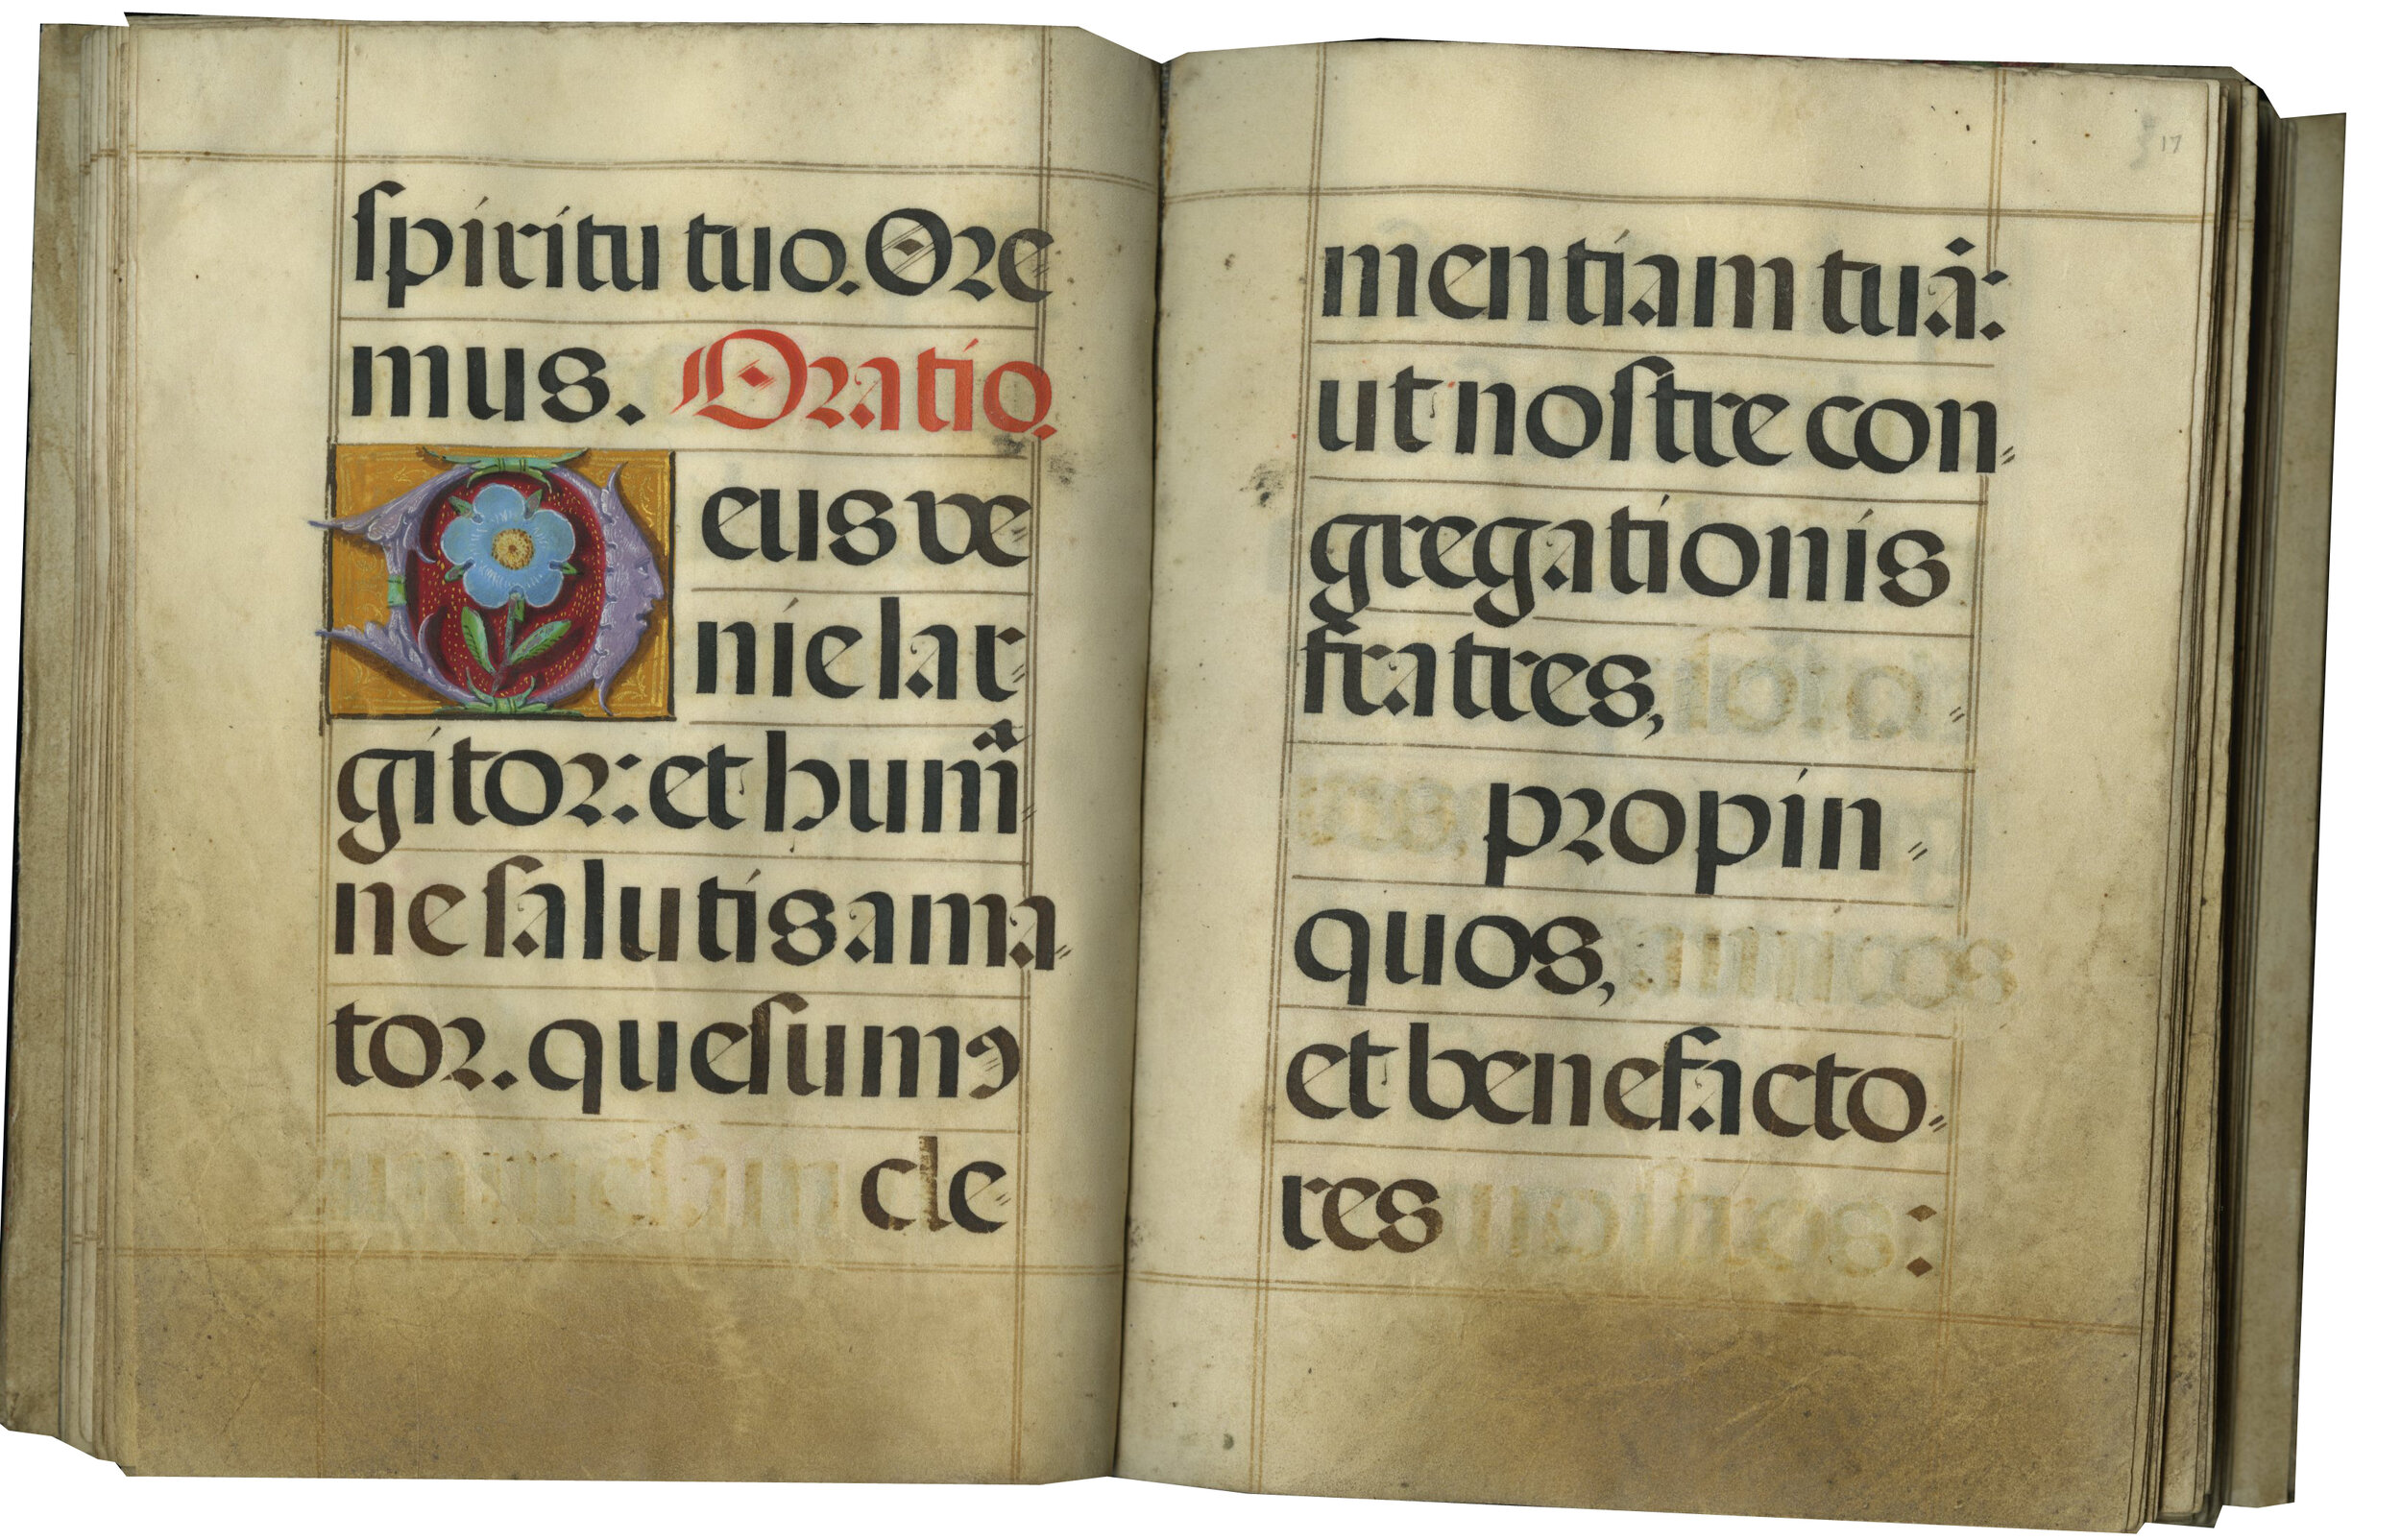 spiritu tuo. Ore
mus. Oratio.
Deus ve
nie lar
gitor: et humã
ne salutis ama
tor. quesumꝰ
cle
mentiam tuã:
ut nostre con
gregationis
fratres,
propin
quos,
et benefacto
res :
17